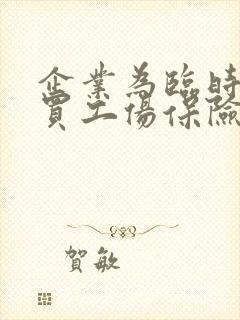 企業為臨時
買工傷保險
賀敏